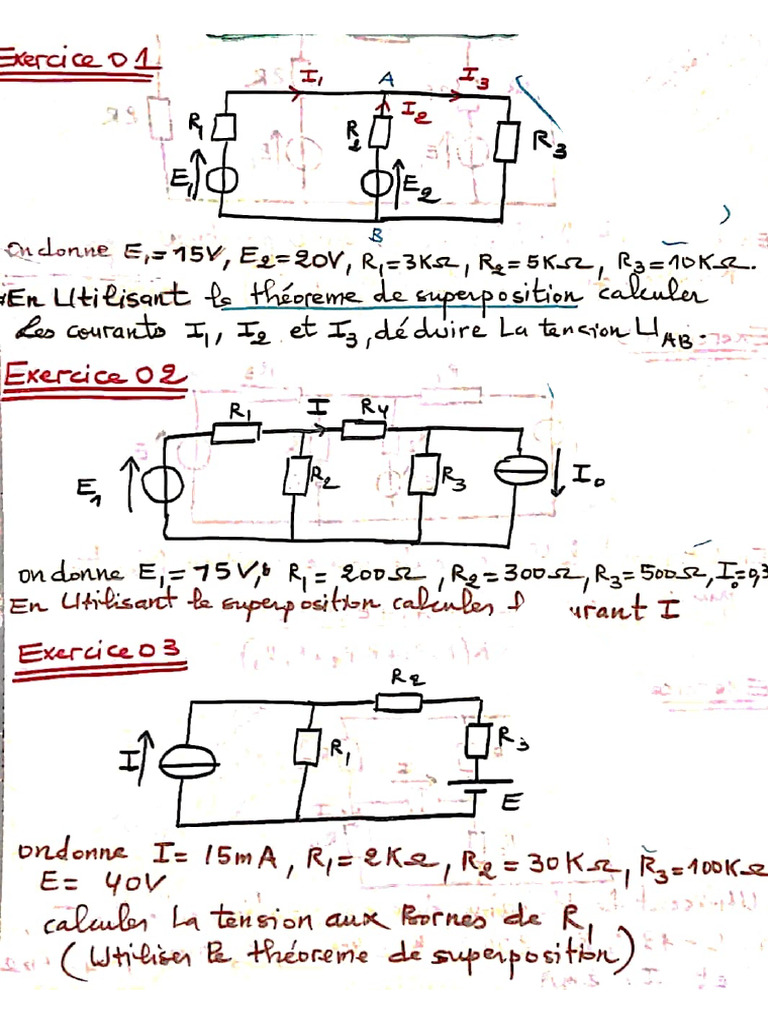 Exercice 01
I1 A I3
R1 R2 I2 R3
E1 E2
B
On donne E1=15V, E2=20V, R1=3KΩ, R2=5KΩ, R3=10KΩ.
En Utilisant le théoreme de superposition calculer
Les courants I1, I2 et I3, déduire La tension UAB.
Exercice 02
R1 I R4
E1 R2 R3 I0
on donne E1=15V, R1=200Ω, R2=300Ω, R3=500Ω, I0=0,3
En Utilisant le superposition calculer urant I
Exercice 03
R2
I R1 R3
E
on donne I=15mA, R1=2KΩ, R2=30KΩ, R3=100KΩ
E= 40V
calculer La tension aux Bornes de R1
(Utiliser le théoreme de superposition)